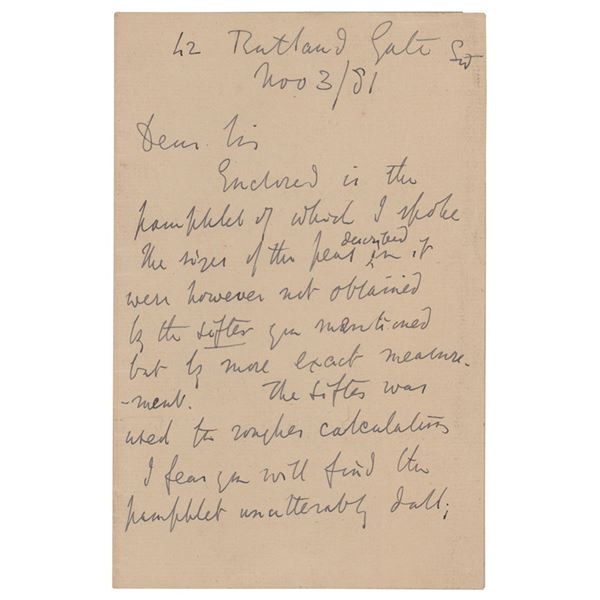 42 Rutland Gate SW
Nov 3/81
Dear Sir
Enclosed is the
pamphlet of which I spoke
The sizes of the peas described in it
were however not obtained
by the sifter you mentioned
but by more exact measure-
-ment. The sifter was
used for rougher calculations
I fear you will find the
pamphlet unutterably dull;